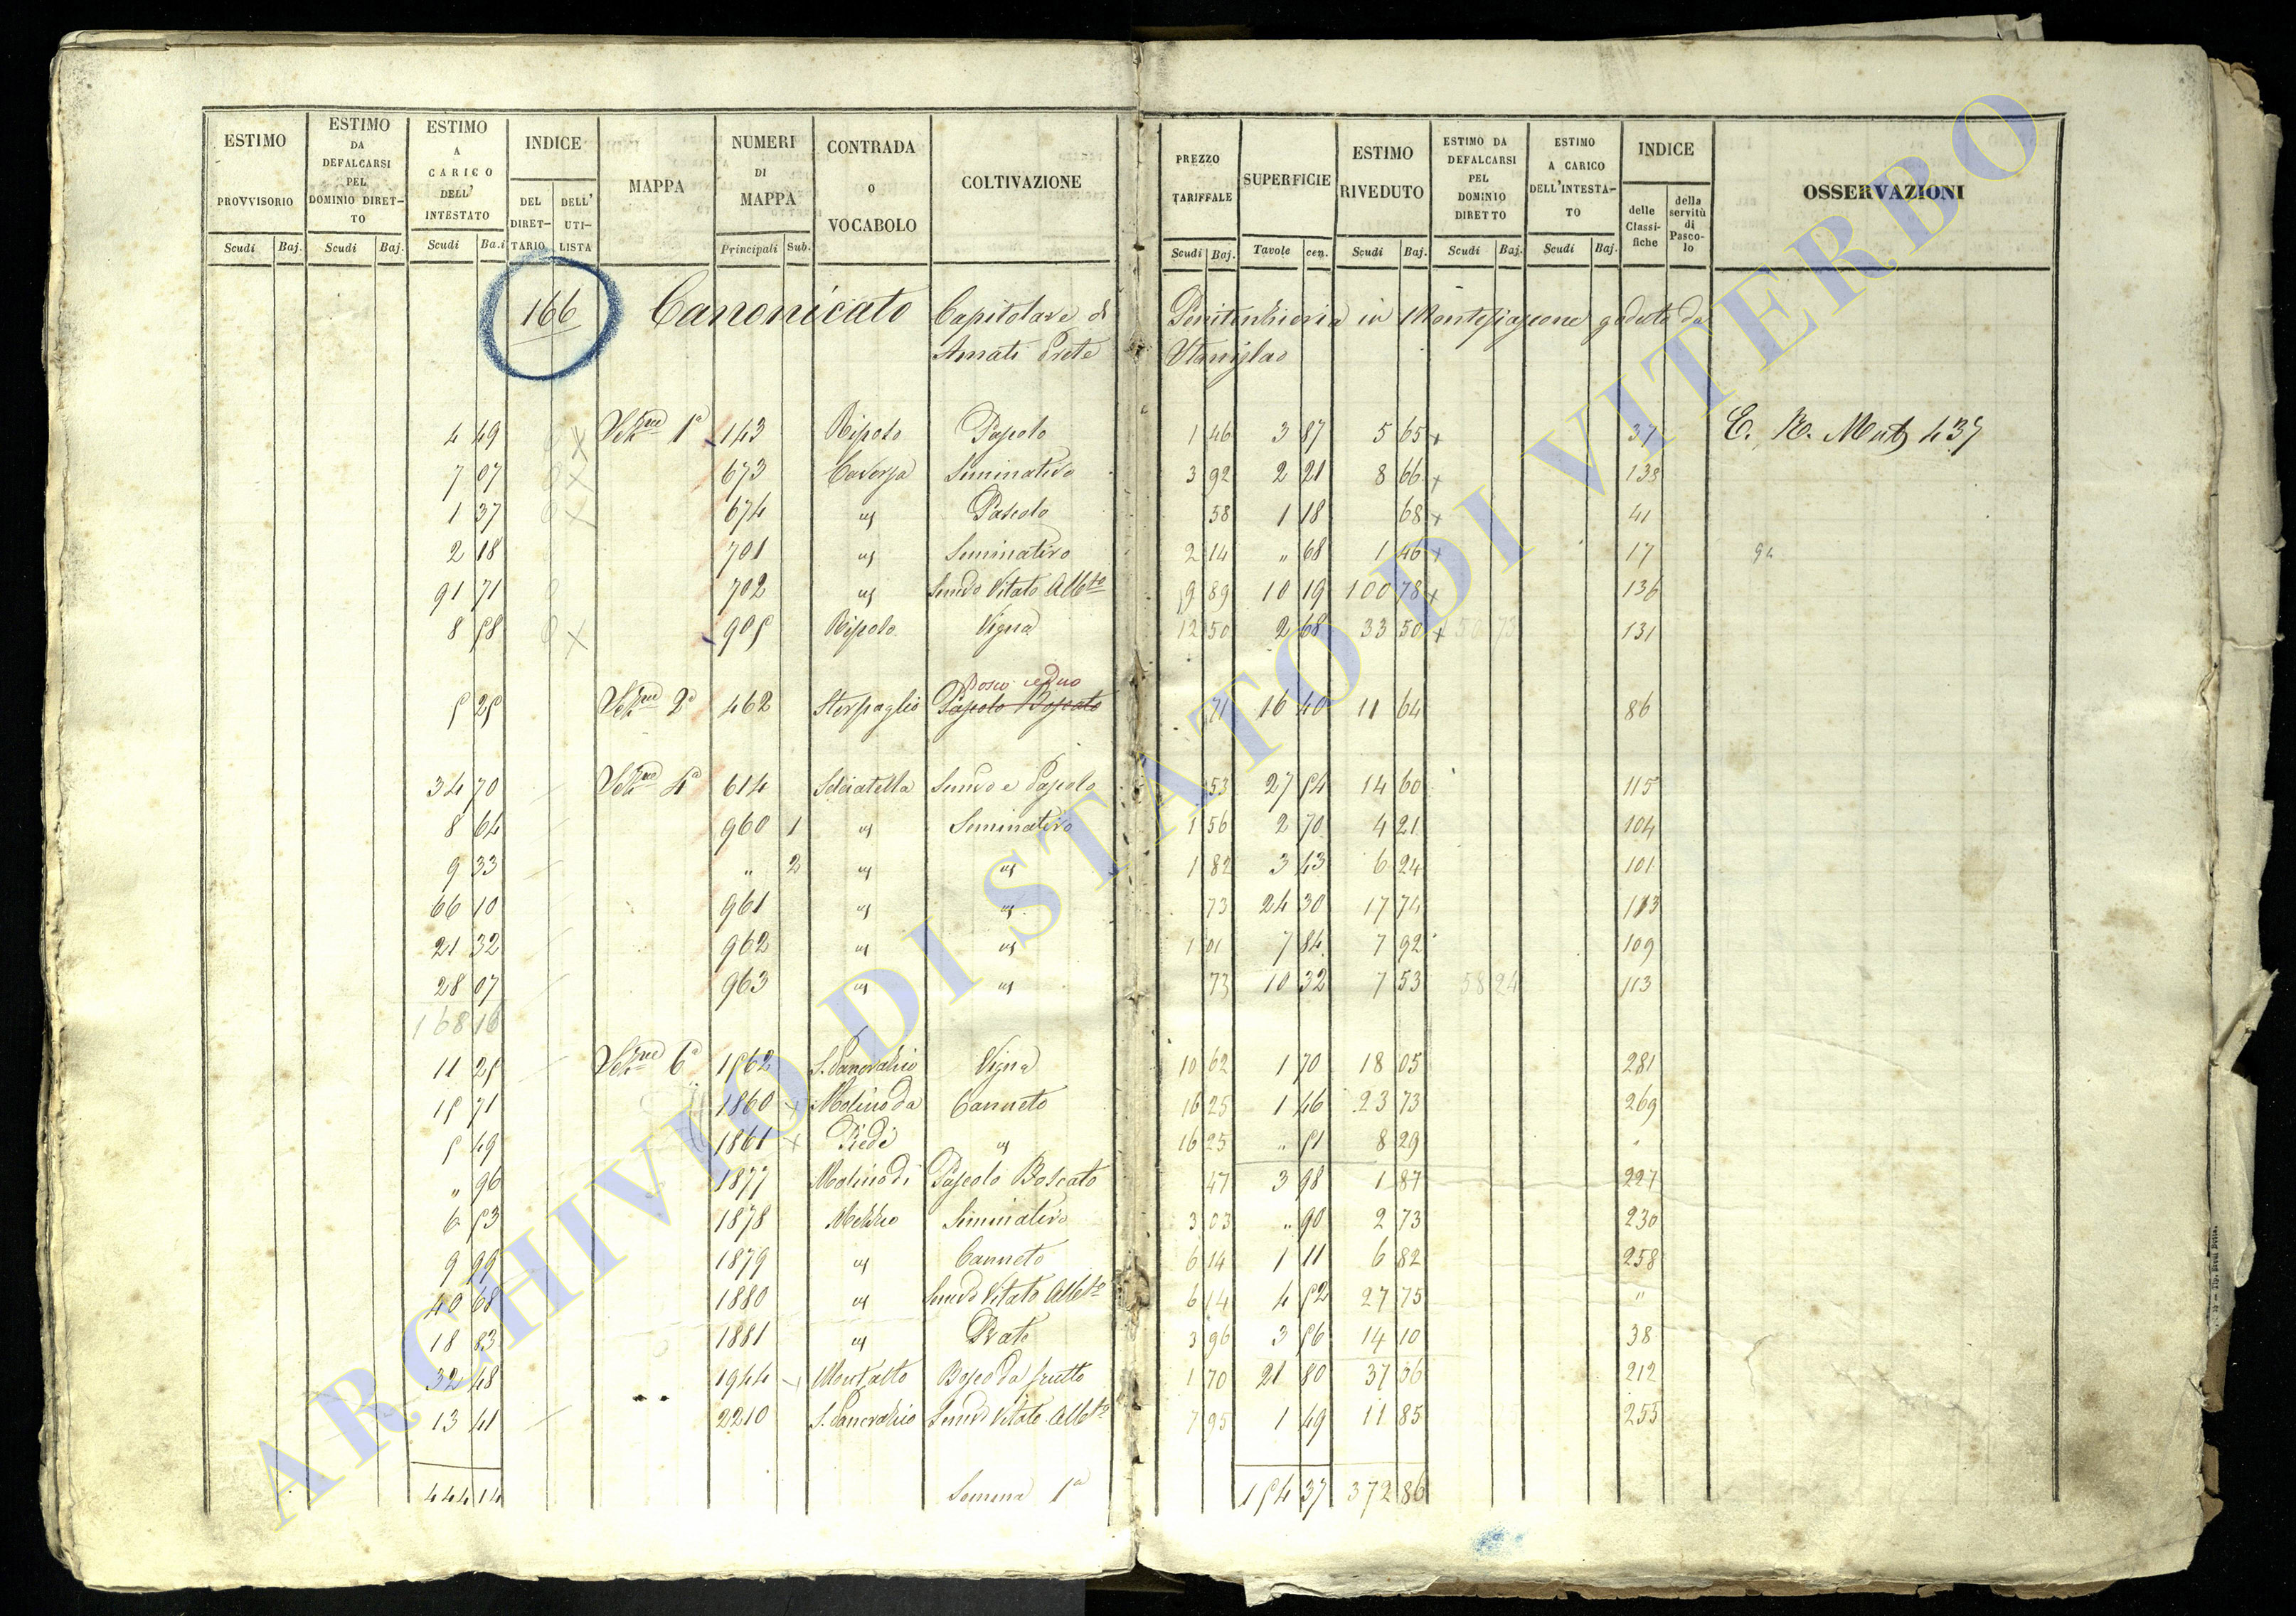 ESTIMO PROVVISORIO Scudi Baj.
ESTIMO DA DEFALCARSI PEL DOMINIO DIRET-TO Scudi Baj.
ESTIMO A CARICO DELL' INTESTATO Scudi Baj.
INDICE DEL DIRET-TARIO DELL' UTI-LISTA
MAPPA
NUMERI DI MAPPA Principali Sub.
CONTRADA O VOCABOLO
COLTIVAZIONE
PREZZO TARIFFALE Scudi Baj.
SUPERFICIE Tavole cen.
ESTIMO RIVEDUTO Scudi Baj.
ESTIMO DA DEFALCARSI PEL DOMINIO DIRETTO Scudi Baj.
ESTIMO A CARICO DELL'INTESTA-TO Scudi Baj.
INDICE delle Classi-fiche della servitù di Pasco-lo
OSSERVAZIONI
166 Canonicato Capitolare di Penitenzieria in Montefiascone goduto da
Amati Prete Stanislao
4 49 Sezne 1a 143 Ripolo Pascolo 1 46 3 87 5 65 + 37 E. R. Mut 437
7 07 673 Caversa Seminativo 3 92 2 21 8 66 + 138
1 37 674 " Pascolo 58 1 18 68 + 41
2 18 701 " Seminativo 2 14 " 68 1 46 + 17
91 71 702 " Semvo Vitato Albto 9 89 10 19 100 78 + 136
8 58 905 Ripolo Vigna 12 50 2 68 33 50 + 50 73 131
Bosco ceduo
5 25 Sezne 2a 462 Sterpaglio Pascolo Boscato 71 16 40 11 64 86
34 70 Sezne 4a 614 Selciatella Semvo e Pascolo 53 27 54 14 60 115
8 64 960 1 " Seminativo 1 56 2 70 4 21 104
9 33 " 2 " " 1 82 3 43 6 24 101
66 10 961 " " 73 24 30 17 74 113
21 32 962 " " 1 01 7 84 7 92 109
28 07 963 " " 73 10 32 7 53 58 24 113
168 16
11 25 Sezne 6a 1562 S. Pancrazio Vigna 10 62 1 70 18 05 281
15 71 1860 + Molino da Canneto 16 25 1 46 23 73 269
5 49 1861 + Piedi " 16 25 " 51 8 29 "
" 96 1877 Molino di Pascolo Boscato 47 3 98 1 87 227
6 53 1878 Mezzo Seminativo 3 03 " 90 2 73 230
9 99 1879 " Canneto 6 14 1 11 6 82 258
40 68 1880 " Semvo Vitato Albto 6 14 4 52 27 75 "
18 83 1881 " Prato 3 96 3 56 14 10 38
32 48 1944 Montalto Bosco da frutto 1 70 21 80 37 06 212
13 41 2210 S. Pancrazio Semvo Vitato Albto 7 95 1 49 11 85 255
444 14 Somma 1a 154 37 372 86
ARCHIVIO DI STATO DI VITERBO